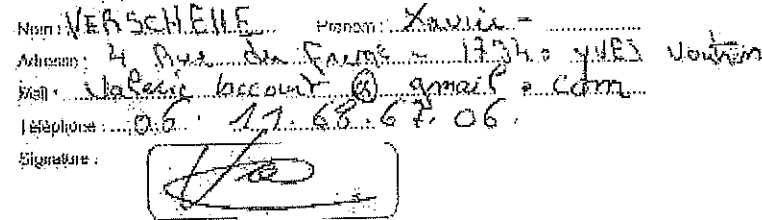 Nom : VERSCHELLE Prénom : Xavier -
Adresse : 4 Rue du - 17340 YVES
Mail : Valerie laccourt @ gmail . com
Téléphone : 06. 11. 68. 67. 06.
Signature :